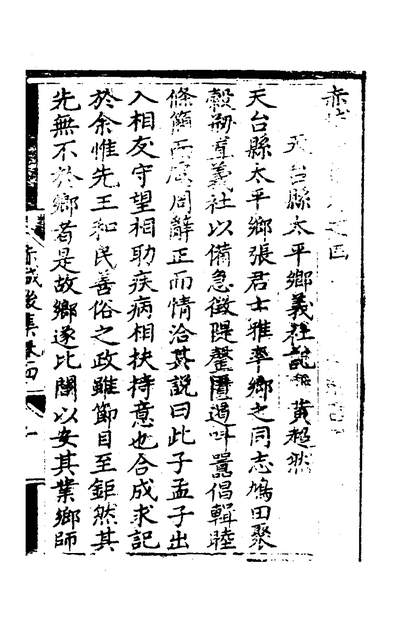 赤
天台縣太平鄉義社記 黃超然
天台縣太平鄉張君士雅率鄉之同志鳩田聚
穀剏 義社以備急徵 遏叫囂倡輯睦
條 而 周辭正而情洽其說曰此子孟子出
入相友守望相助疾病相扶持意也合成求記
於余惟先王和民善俗之政雖節目至鉅然其
先無不於鄉者是故鄉遂比閭以安其業鄉師
赤城後集卷四